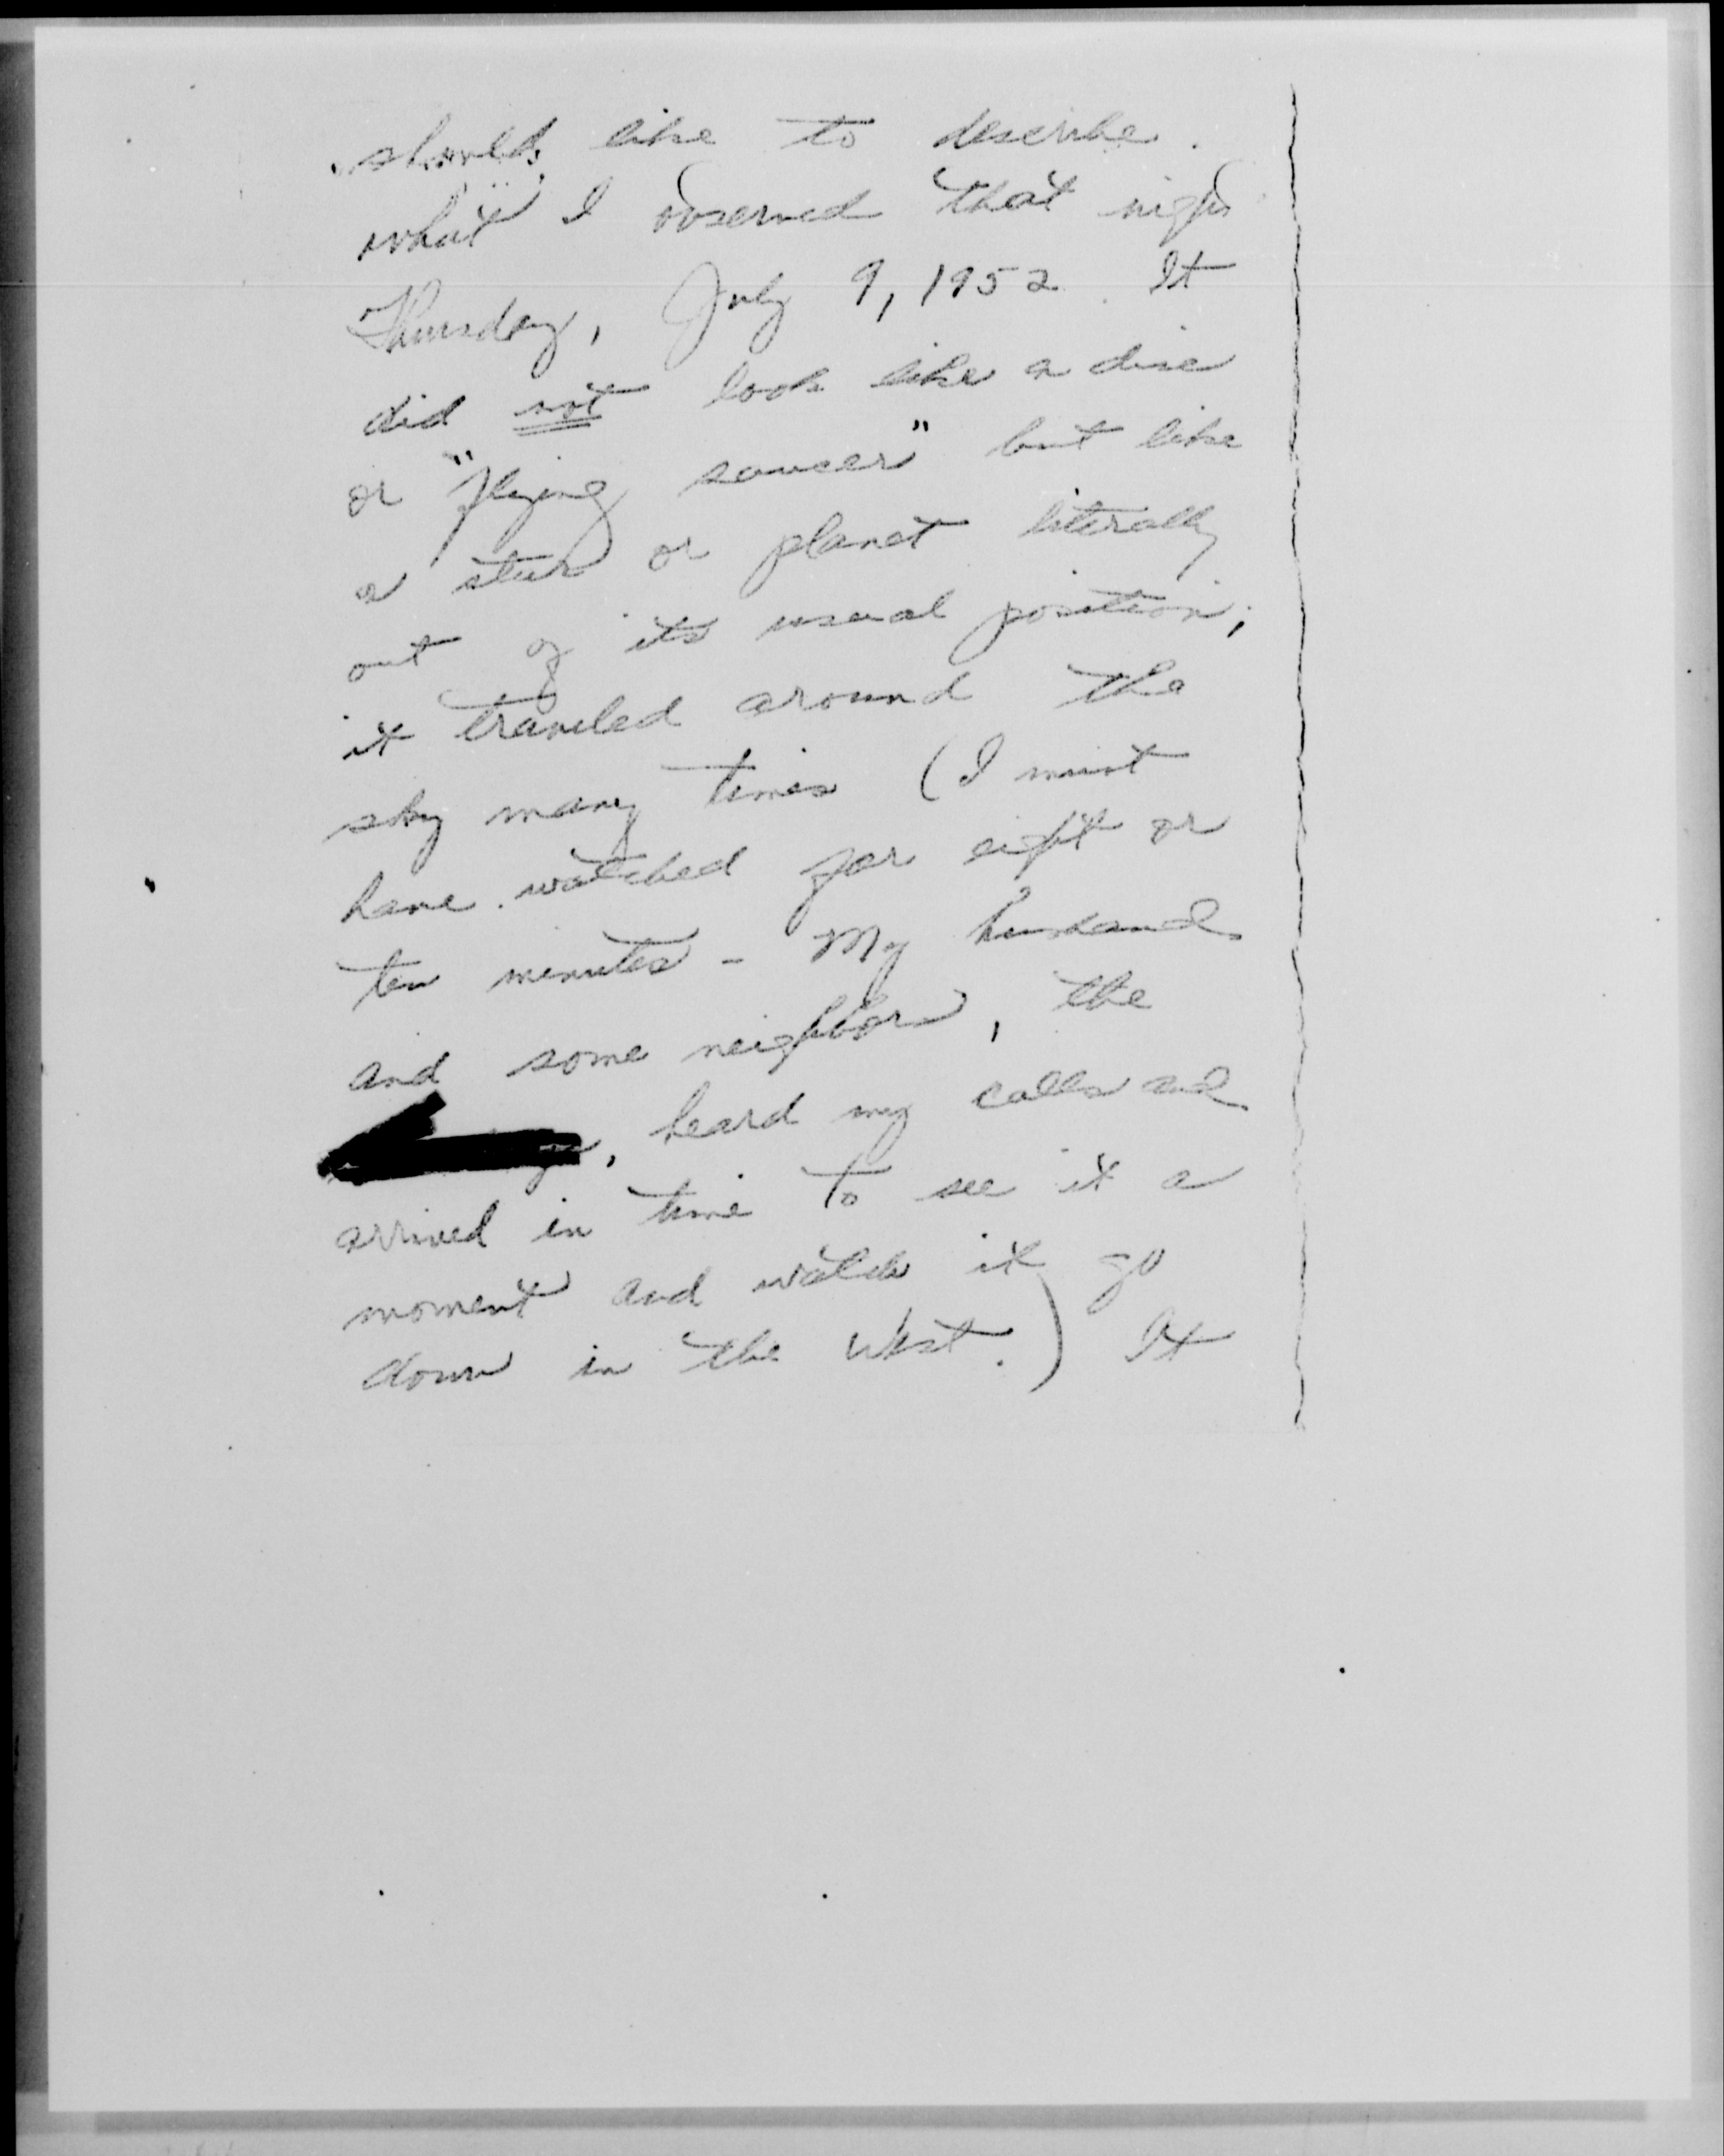 should like to describe
what I observed that night
Thursday, July 9, 1952. It
did not look like a disc
or "flying saucer" but like
a star or planet literally
out of its usual position;
it traveled around the
sky many times (I must
have watched for eight or
ten minutes - My husband
and some neighbors, the
, heard my calls and
arrived in time to see it a
moment and watch it go
down in the West.) It